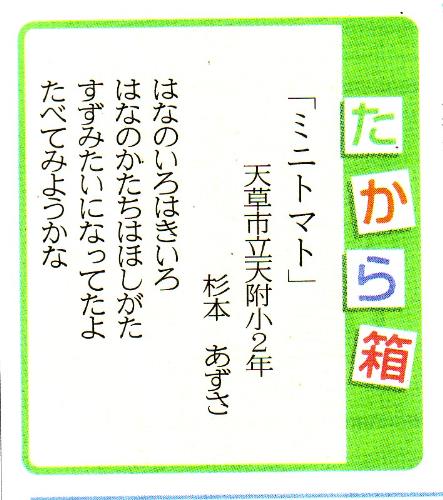 たから箱
「ミニトマト」
天草市立天附小2年
杉本　あずさ
はなのいろはきいろ
はなのかたちはほしがた
すずみたいになってたよ
たべてみようかな